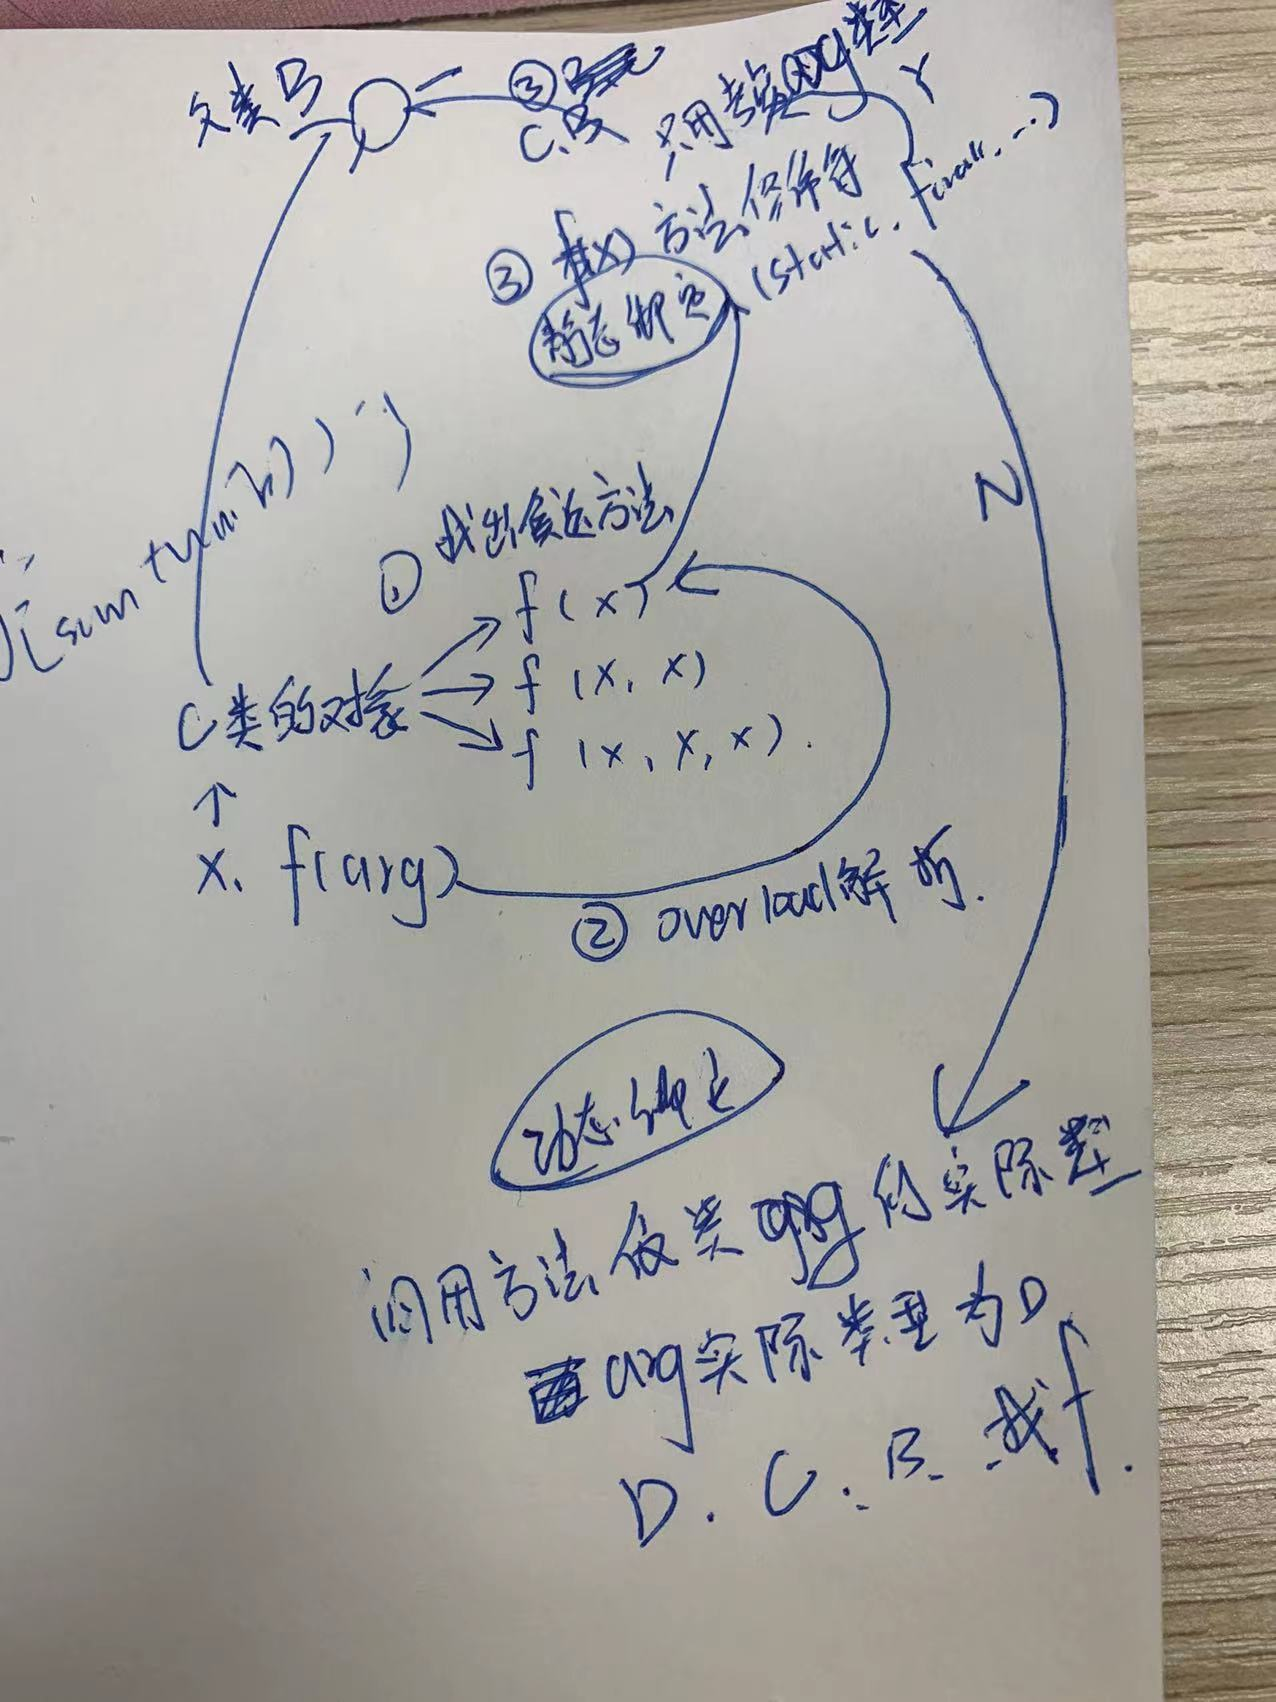 父类B
③
C.B
只用考虑arg类型
Y
③ f(x) 方法修饰符
(static, final, ...)
静态绑定
N
① 找出候选方法
f(x)
C类的对象
f(x, x)
f(x, x, x).
↑
x. f(arg)
② overload解析.
动态绑定
调用方法 依 类 arg 的实际类型
arg实际类型为D
D. C. B. 找f.